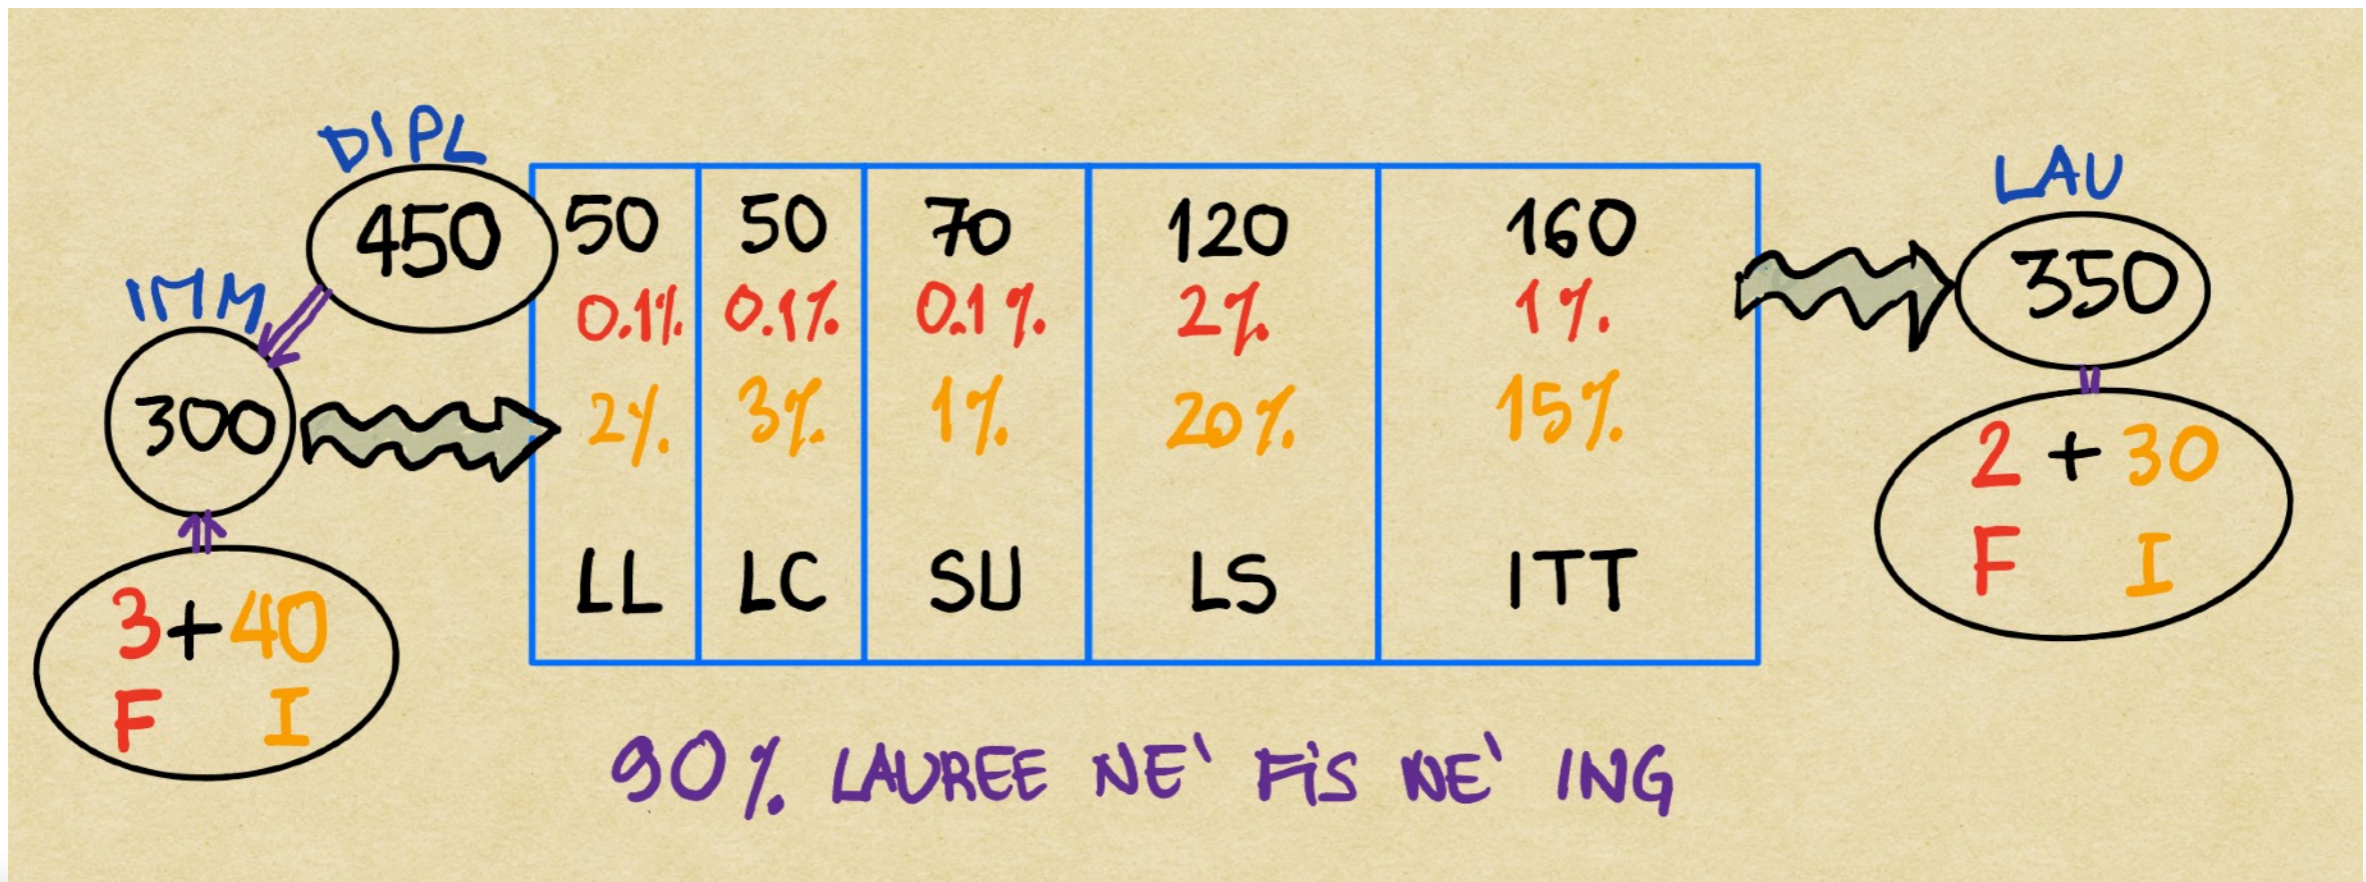 DIPL
450
IMM
300
3+40
F I
50 50 70 120 160
0.1% 0.1% 0.1% 2% 1%
2% 3% 1% 20% 15%
LL LC SU LS ITT
LAU
350
2 + 30
F I
90% LAUREE NE' FIS NE' ING